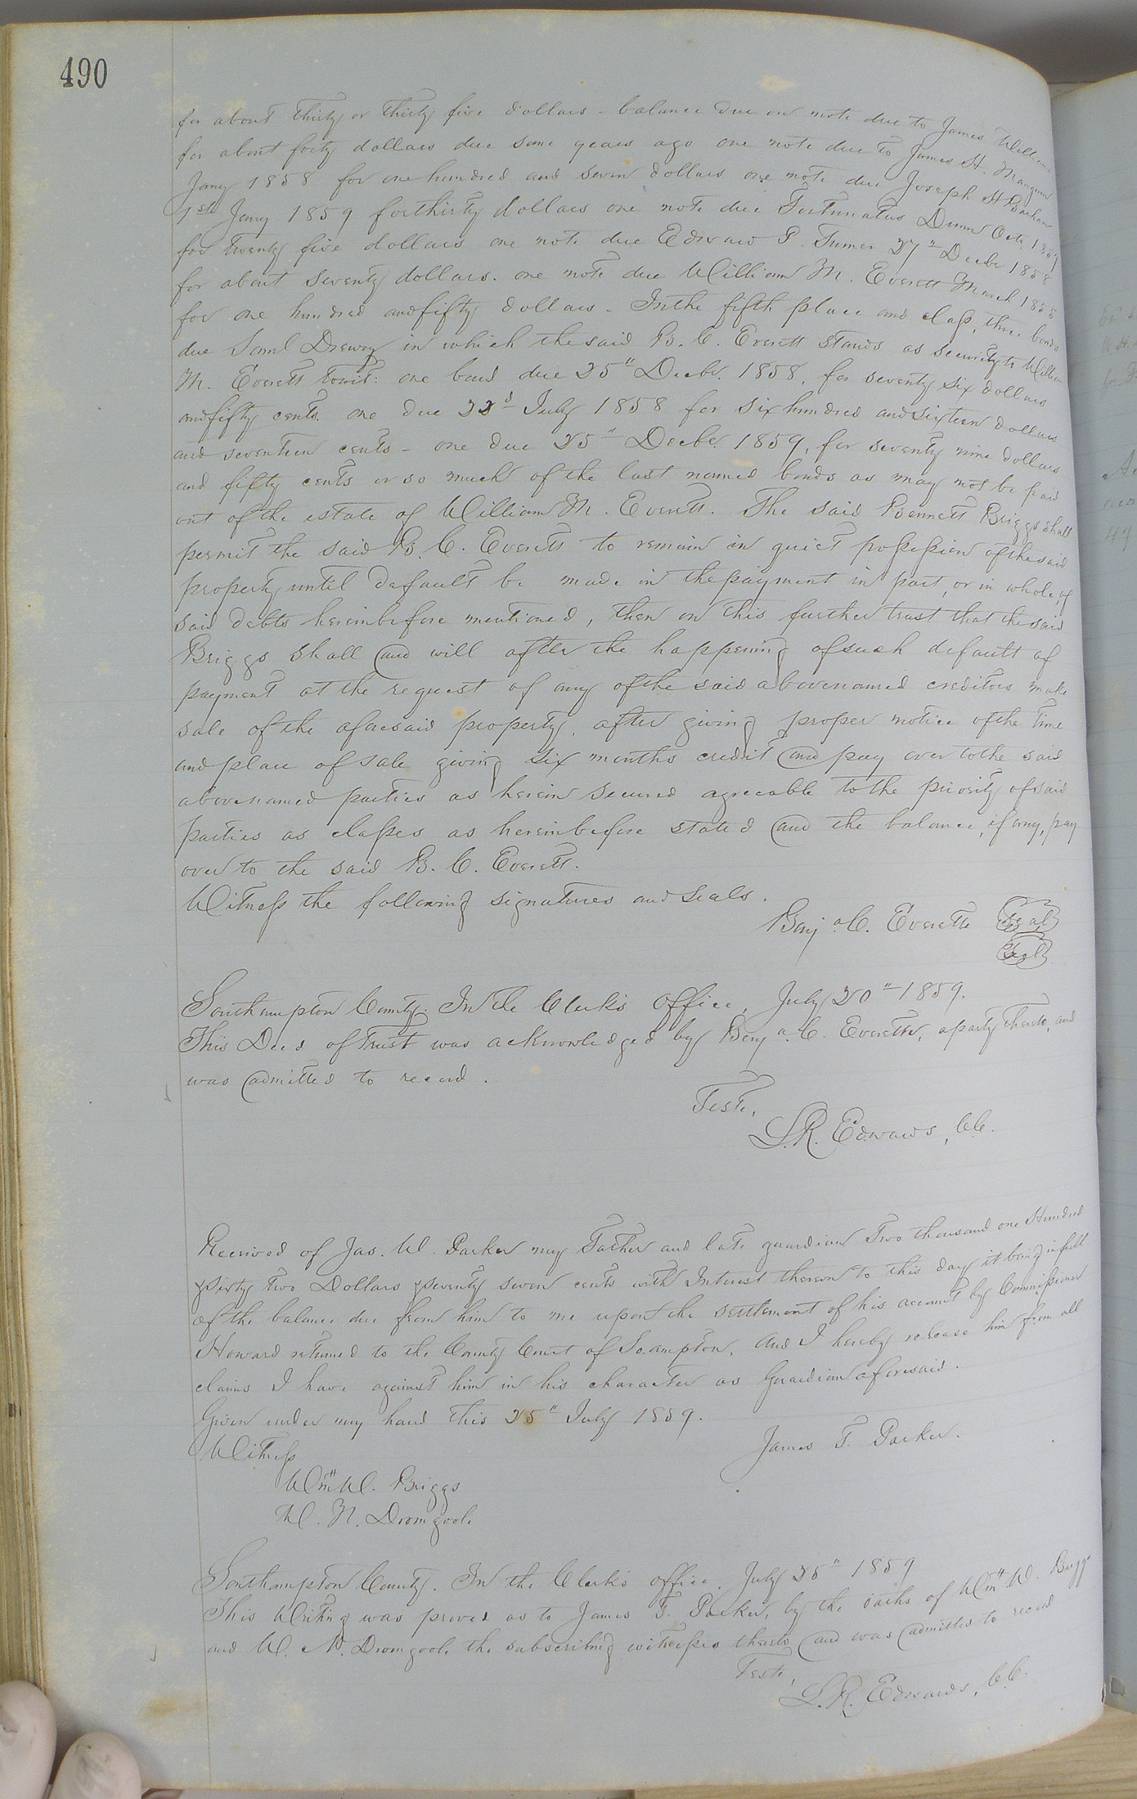 490
for about thirty or thirty five dollars - balance due on note due to James
for about forty dollars due some years ago one note due to James H. Mangum
Jany 1858 for one hundred and seven dollars one note due Joseph H
1st Jany 1859 for thirty dollars one note due Fortunatus Oct. 1859
for twenty five dollars one note due Edward P. Turner 27" Decbr 1858
for about seventy dollars. one note due William M. Everett March 1858
for one hundred and fifty dollars. In the fifth place and class, three bonds
due Saml Drewry in which the said B. C. Everett stands as security to William
M. Everett towit: one bond due 25" Decbr. 1858, for seventy six dollars
and fifty cents. one due 22d July 1858 for six hundred and sixteen dollars
and seventeen cents - one due 25" Decbr 1859, for seventy nine dollars
and fifty cents or so much of the last named bonds as may not be paid
out of the estate of William M. Everett. The said Bennett Briggs shall
permit the said B. C. Everett to remain in quiet possession of the said
property until default be made in the payment in part, or in whole, of
said debts hereinbefore mentioned, then on this further trust that the said
Briggs shall and will after the happening of such default of
payment at the request of any of the said abovenamed creditors make
sale of the aforesaid property, after giving proper notice of the time
and place of sale giving six months credit and pay over to the said
abovenamed parties as herein secured agreeable to the priority of said
parties as classes as hereinbefore stated and the balance, if any, pay
over to the said B. C. Everett.
Witness the following signatures and seals.
Benj. C. Everette Seal
Seal
Southampton County. In the Clerk's office, July 20" 1859.
This Deed of Trust was acknowledged by Benj. C. Everette, a party thereto, and
was admitted to record.
Teste,
L. R. Edwards, C.C.
Received of Jas. W. Parker my Father and late guardian Two thousand one Hundred
& sixty two Dollars & seventy seven cents with Interest thereon to this day it being in full
of the balance due from him to me upon the settlement of his account by Commissioner
Howard returned to the County Court of So.ampton, and I hereby release him from all
claims I have against him in his character as Guardian aforesaid.
Given under my hand this 25" July 1859.
Witness
James T. Parker.
Wm. W. Briggs
W. N. Dromgoole
Southampton County. In the Clerk's office, July 25" 1859
This Writing was proved as to James T. Parker, by the oaths of Wm. W. Briggs
and W. N. Dromgoole the subscribing witnesses thereto, and was admitted to record
Teste,
L. R. Edwards, C.C.